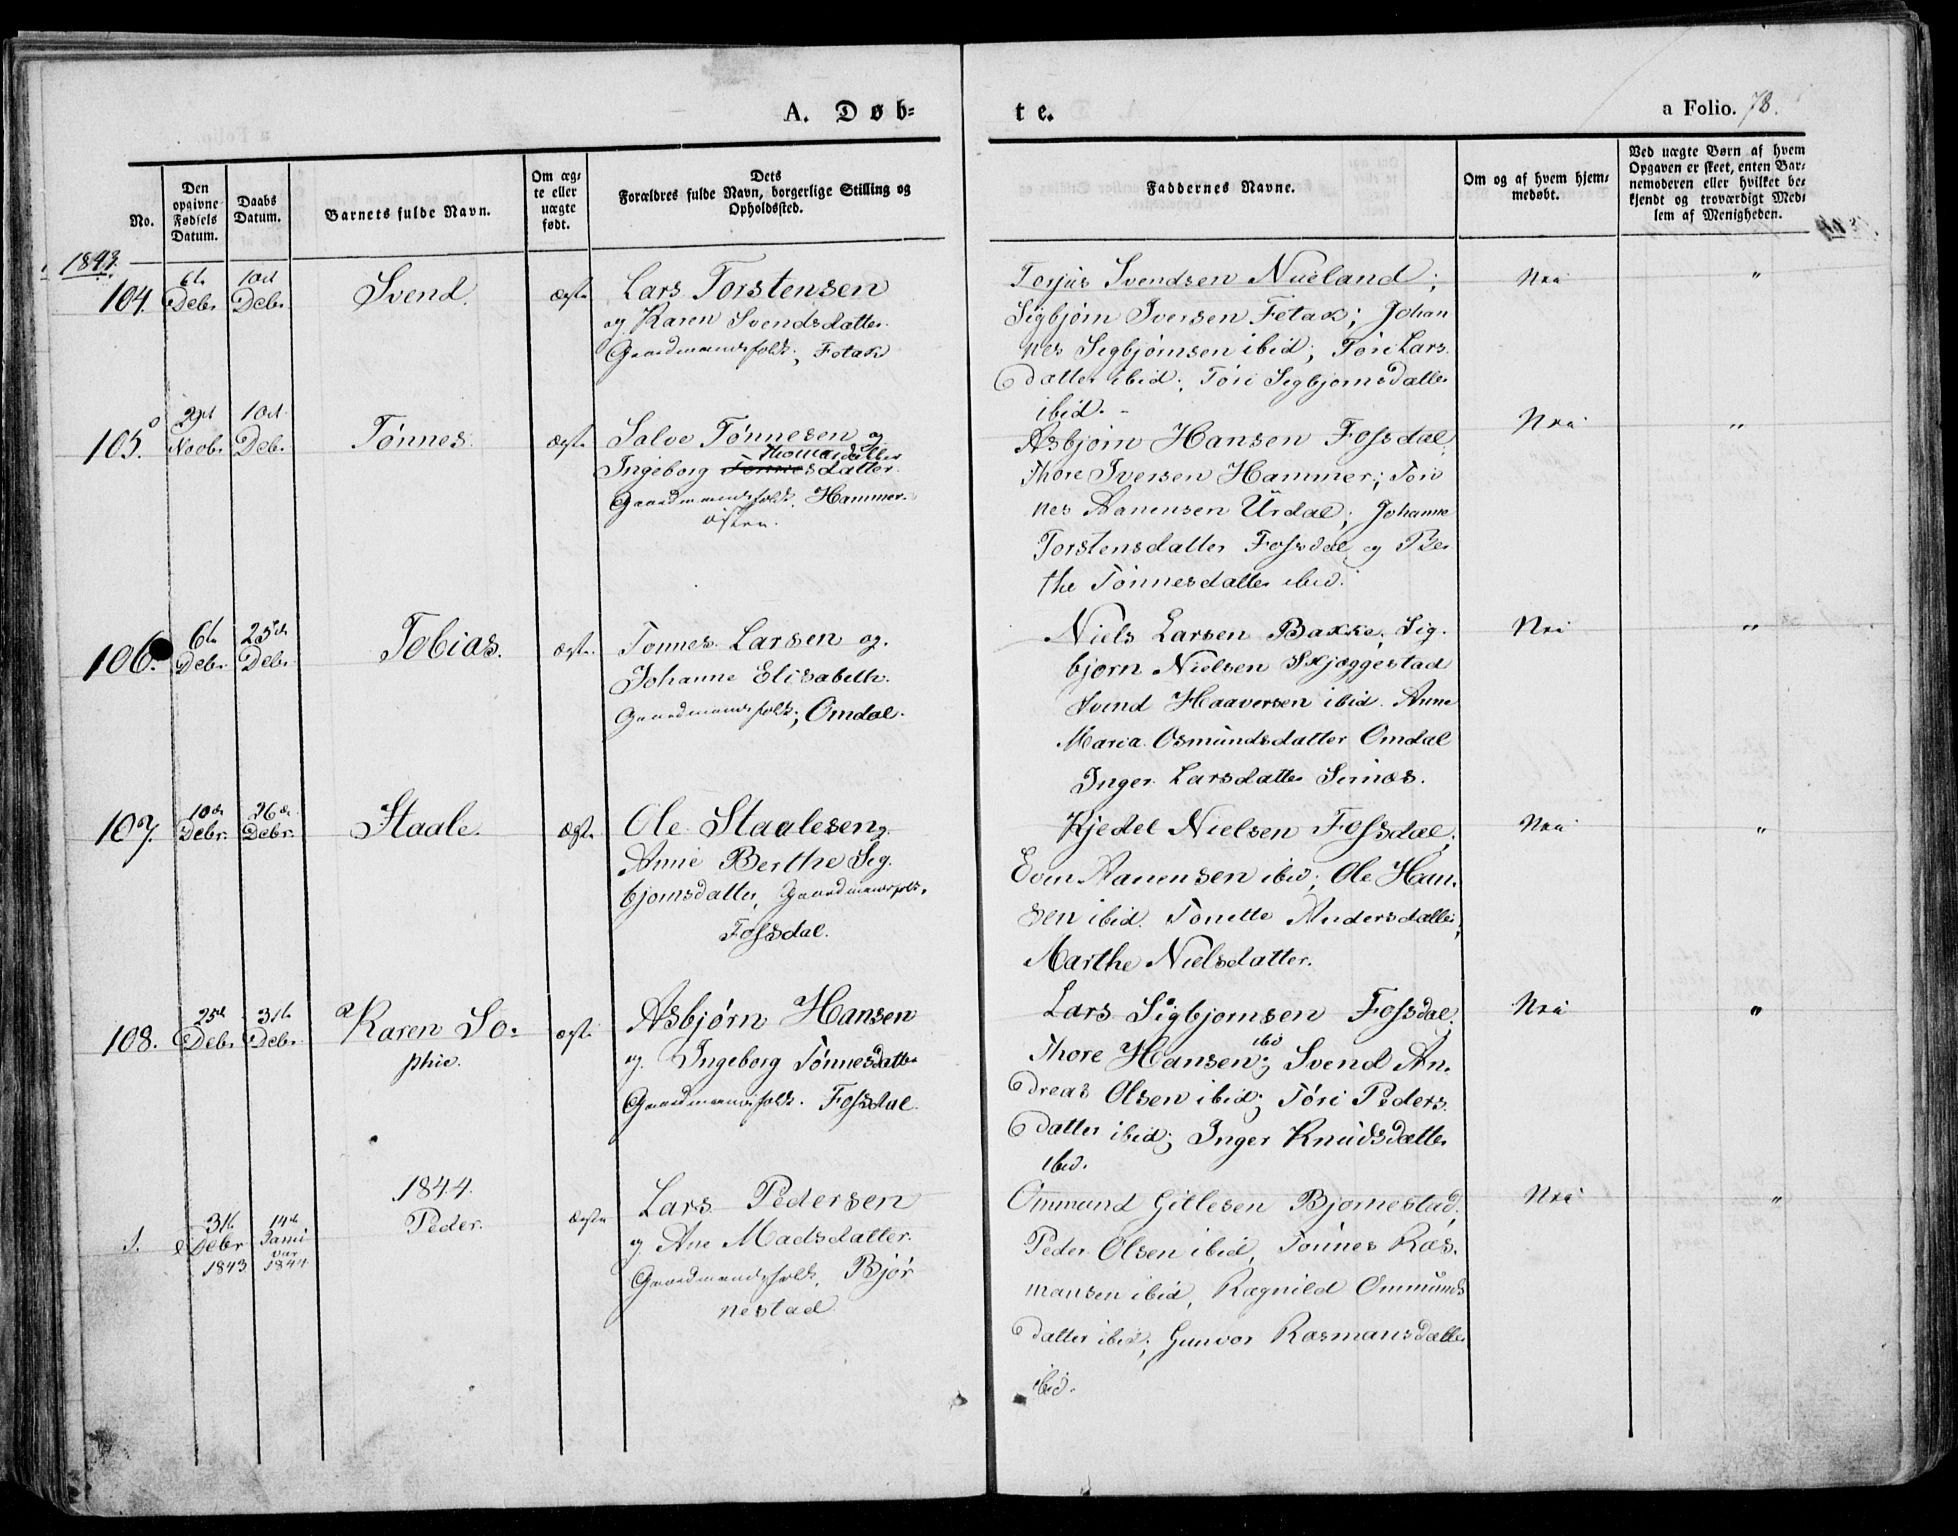 A. Døb-
te.
a Folio. 78.
No.
Den opgivne Fødsels Datum.
Daabs Datum.
Barnets fulde Navn.
Om æg-
te eller
uægte
født.
Dets
Forældres fulde Navn, borgerlige Stilling og
Opholdssted.
Faddernes Navne.
Om og af hvem hjem-
medøbt.
Ved uægte Børn af hvem
Opgaven er skeet, enten Bar-
nemoderen eller hvilket be-
kjendt og troværdigt Med-
lem af Menigheden.
1843.
104.
6te Debr
10de Debr
Svend.
ægte
Lars Torstensen
og Karen Svendsdatter.
Gaardmandsfolk, Fotak
Torjus Svendsen Nueland;
Sigbjørn Iversen Fetak; Johan
nes Sigbjørnsen ibid; Tøri Lars
datter ibid; Tøri Sigbjørnsdatter
ibid.
Nei
"
105.
29de Novbr
10de Debr.
Tønnes.
ægte
Salve Tønnesen og
Thomasdatter
Ingeborg Tønnesdatter.
Gaardmandsfolk, Hammer
østen.
Asbjørn Hansen Fossdal;
Thore Iversen Hammer; Tøn
nes Aanensen Urdal; Johanne
Torstensdatter Fossdal og Ber
the Tønnesdatter ibid.
Nei
"
106.
6te Debr.
25de Debr.
Tobias.
ægte.
Tønnes Larsen og
Johanne Elisabeth.
Gaardmandsfolk; Omdal.
Niels Larsen Bakke, Sig-
bjørn Nielsen Skjæggestad
Svend Haaversen ibid. Anne
Maria Osmundsdatter Omdal
Inger Larsdatter Sirnæs.
Nei
"
107.
10de Debr.
26de Debr.
Staale.
ægte
Ole Staalesen og
Anne Berthe Sig-
bjørnsdatter, Gaardmandsfolk,
Fossdal.
Kjedel Nielsen Fossdal;
Even Aanensen ibid; Ole Han-
sen ibid. Tonette Andersdatter;
Marthe Nielsdatter.
Nei
"
108.
25de Debr
31te Debr
Karen So-
phie.
ægte
Asbjørn Hansen
og Ingeborg Tønnesdatter
Gaardmandsfolk. Fossdal.
Lars Sigbjørnsen Fossdal;
Thore Hansen ibid; Svend An-
dreas Olsen ibid; Tøri Peders
datter ibid; Inger Knudsdatter
ibid.
Nei
"
1844.
1.
31te Debr 1843
14de Januar 1844
Peder.
ægte
Lars Pedersen
og Ane Madsdatter.
Gaardmandsfolk, Bjør
nestad
Ommund Gitlesen Bjørnestad,
Peder Olsen ibid, Tønnes Ras-
mansen ibid, Ragnild Ommunds
datter ibid; Gunvor Rasmansdatter
ibid.
Nei
"